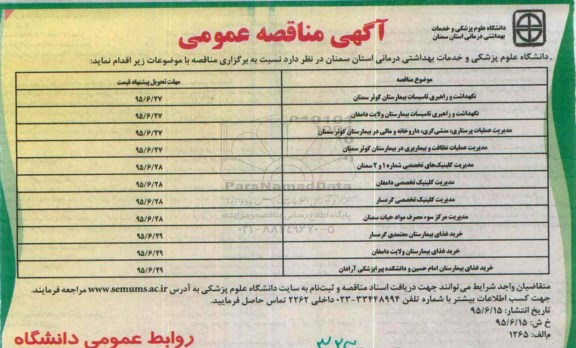 دانشگاه علوم پزشکی و خدمات
بهداشتی درمانی استان سمنان
آگهی مناقصه عمومی
دانشگاه علوم پزشکی و خدمات بهداشتی درمانی استان سمنان در نظر دارد نسبت به برگزاری مناقصه با موضوعات زیر اقدام نماید:
موضوع مناقصه مهلت تحویل پیشنهاد قیمت
نگهداشت و راهبری تاسیسات بیمارستان کوثر سمنان ۹۵/۶/۲۷
نگهداشت و راهبری تاسیسات بیمارستان ولایت دامغان ۹۵/۶/۲۷
مدیریت عملیات پرستاری، منشی گری، داروخانه و مالی در بیمارستان کوثر سمنان ۹۵/۶/۲۷
مدیریت عملیات نظافت و بیماربری در بیمارستان کوثر سمنان ۹۵/۶/۲۷
مدیریت کلینیک‌های تخصصی شماره ۱ و ۲ سمنان ۹۵/۶/۲۸
مدیریت کلینیک تخصصی دامغان ۹۵/۶/۲۸
مدیریت کلینیک تخصصی گرمسار ۹۵/۶/۲۸
مدیریت مرکز سوء مصرف مواد حیات سمنان ۹۵/۶/۲۸
خرید غذای بیمارستان معتمدی گرمسار ۹۵/۶/۲۹
خرید غذای بیمارستان ولایت دامغان ۹۵/۶/۲۹
خرید غذای بیمارستان امام حسین و دانشکده پیراپزشکی آرادان ۹۵/۶/۲۹
ParsNamadData
پایگاه اطلاع رسانی مناقصه و مزایده
۰۲۱-۸۸۳۴۹۶۷۰-۵
متقاضیان واجد شرایط می‌توانند جهت دریافت اسناد مناقصه و ثبت‌نام به سایت دانشگاه علوم پزشکی به آدرس www.semums.ac.ir مراجعه فرمایند.
جهت کسب اطلاعات بیشتر با شماره تلفن ۳۳۴۴۸۹۹۴-۰۲۳ داخلی ۲۲۶۲ تماس حاصل فرمایید.
تاریخ انتشار: ۹۵/۶/۱۵
خ ش: ۹۵/۶/۱۵
م الف: ۱۲۶۵
روابط عمومی دانشگاه